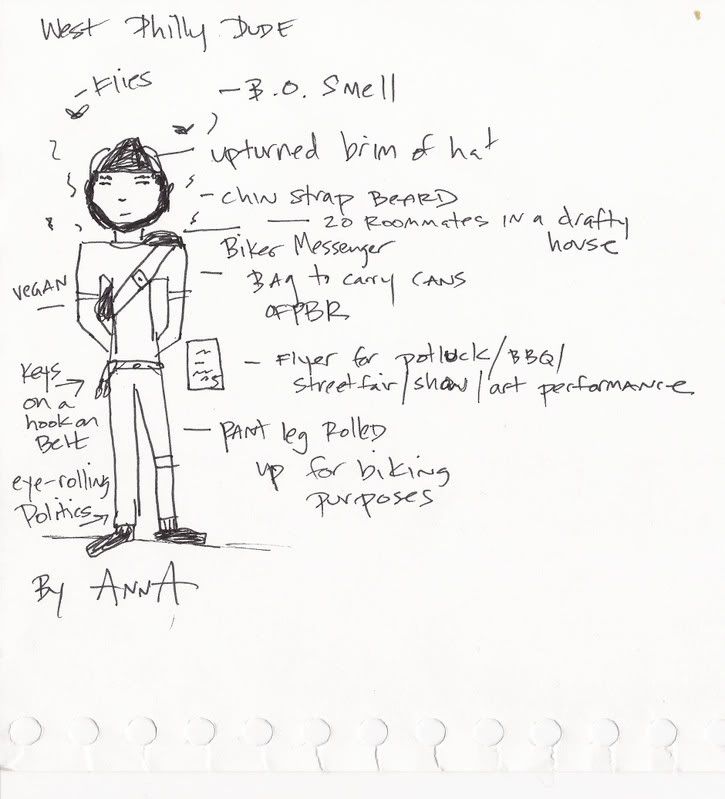 West Philly Dude
Flies
B.O. Smell
upturned brim of hat
chin strap BEARD
20 Roommates in a drafty
house
Biker Messenger
BAg to carry CANS
OF PBR
VEGAN
Flyer for potluck/BBQ/
streetfair/show/art performance
Keys
on a
hook on
Belt
Pant leg Rolled
up for biking
purposes
eye-rolling
Politics
By AnnA